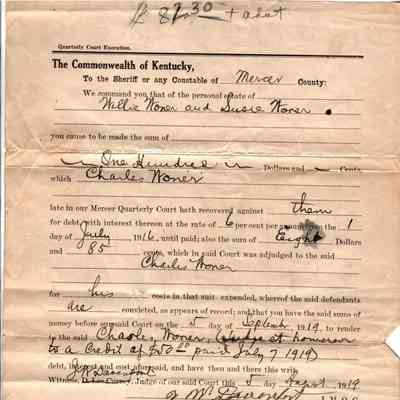 Quarterly Court Execution.
The Commonwealth of Kentucky,
To the Sheriff or any Constable of Mercer County:
We commend you that of the personal estate of
Willie Woner and Susie Woner
you cause to be made the sum of
One Hundred Dollars and Cents,
which Charles Woner
late in our Mercer Quarterly Court hath recovered against them
for debt, with interest thereon at the rate of 6 per cent per annum from the 1
day of July 1916, until paid; also the sum of Eight Dollars
and 85 cents, which in said Court was adjudged to the said
Charles Woner
for his costs in that suit expended, whereof the said defendants
are convicted, as appears of record; and that you have the said sums of
money before our said Court on the 5 day of Septemb 1919, to render
to the said Charles Woner, Judge at however
to a Credit of $50 00 paid July 7 1919
debt, interest and cost aforesaid, and have then and there this writ.
Witness, Judge of our said Court this 5 day August 1919